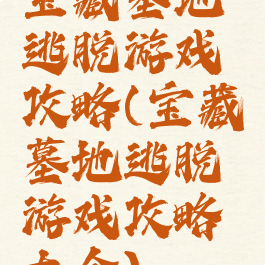 宝藏墓地
逃脱游戏
攻略(宝藏
墓地逃脱
游戏攻略
大全)